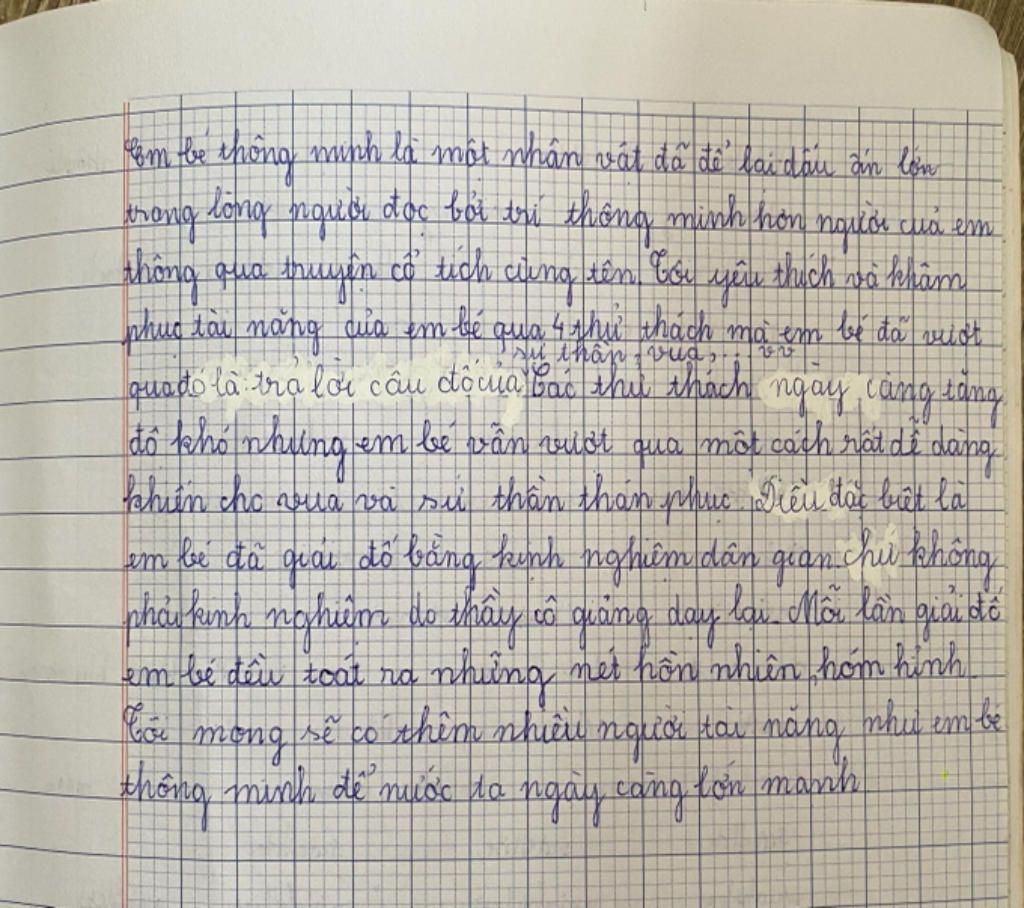 Em bé thông minh là một nhân vật đã để lại dấu ấn lớn
trong lòng người đọc bởi trí thông minh hơn người của em
thông qua truyện cổ tích cùng tên. Tôi yêu thích và khâm
phục tài năng của em bé qua 4 thử thách mà em bé đã vượt
sứ thần, vua,... vv
qua đó là: trả lời câu đố của Các thử thách ngày càng tăng
độ khó nhưng em bé vẫn vượt qua một cách rất dễ dàng
khiến cho vua và sứ thần thán phục. Điều đặc biệt là
em bé đã giải đố bằng kinh nghiệm dân gian chứ không
phải kinh nghiệm do thầy cô giảng dạy lại. Mỗi lần giải đố
em bé đều toát ra những nét hồn nhiên, hóm hỉnh.
Tôi mong sẽ có thêm nhiều người tài năng như em bé
thông minh để nước ta ngày càng lớn mạnh